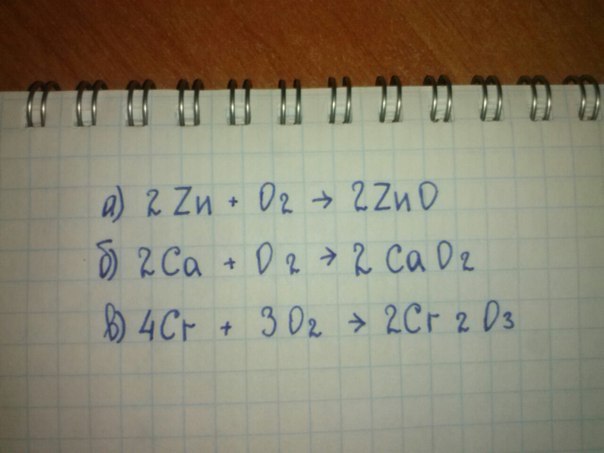 а) 2Zn + O2 → 2ZnO
б) 2Ca + O2 → 2CaO2
в) 4Cr + 3O2 → 2Cr2O3